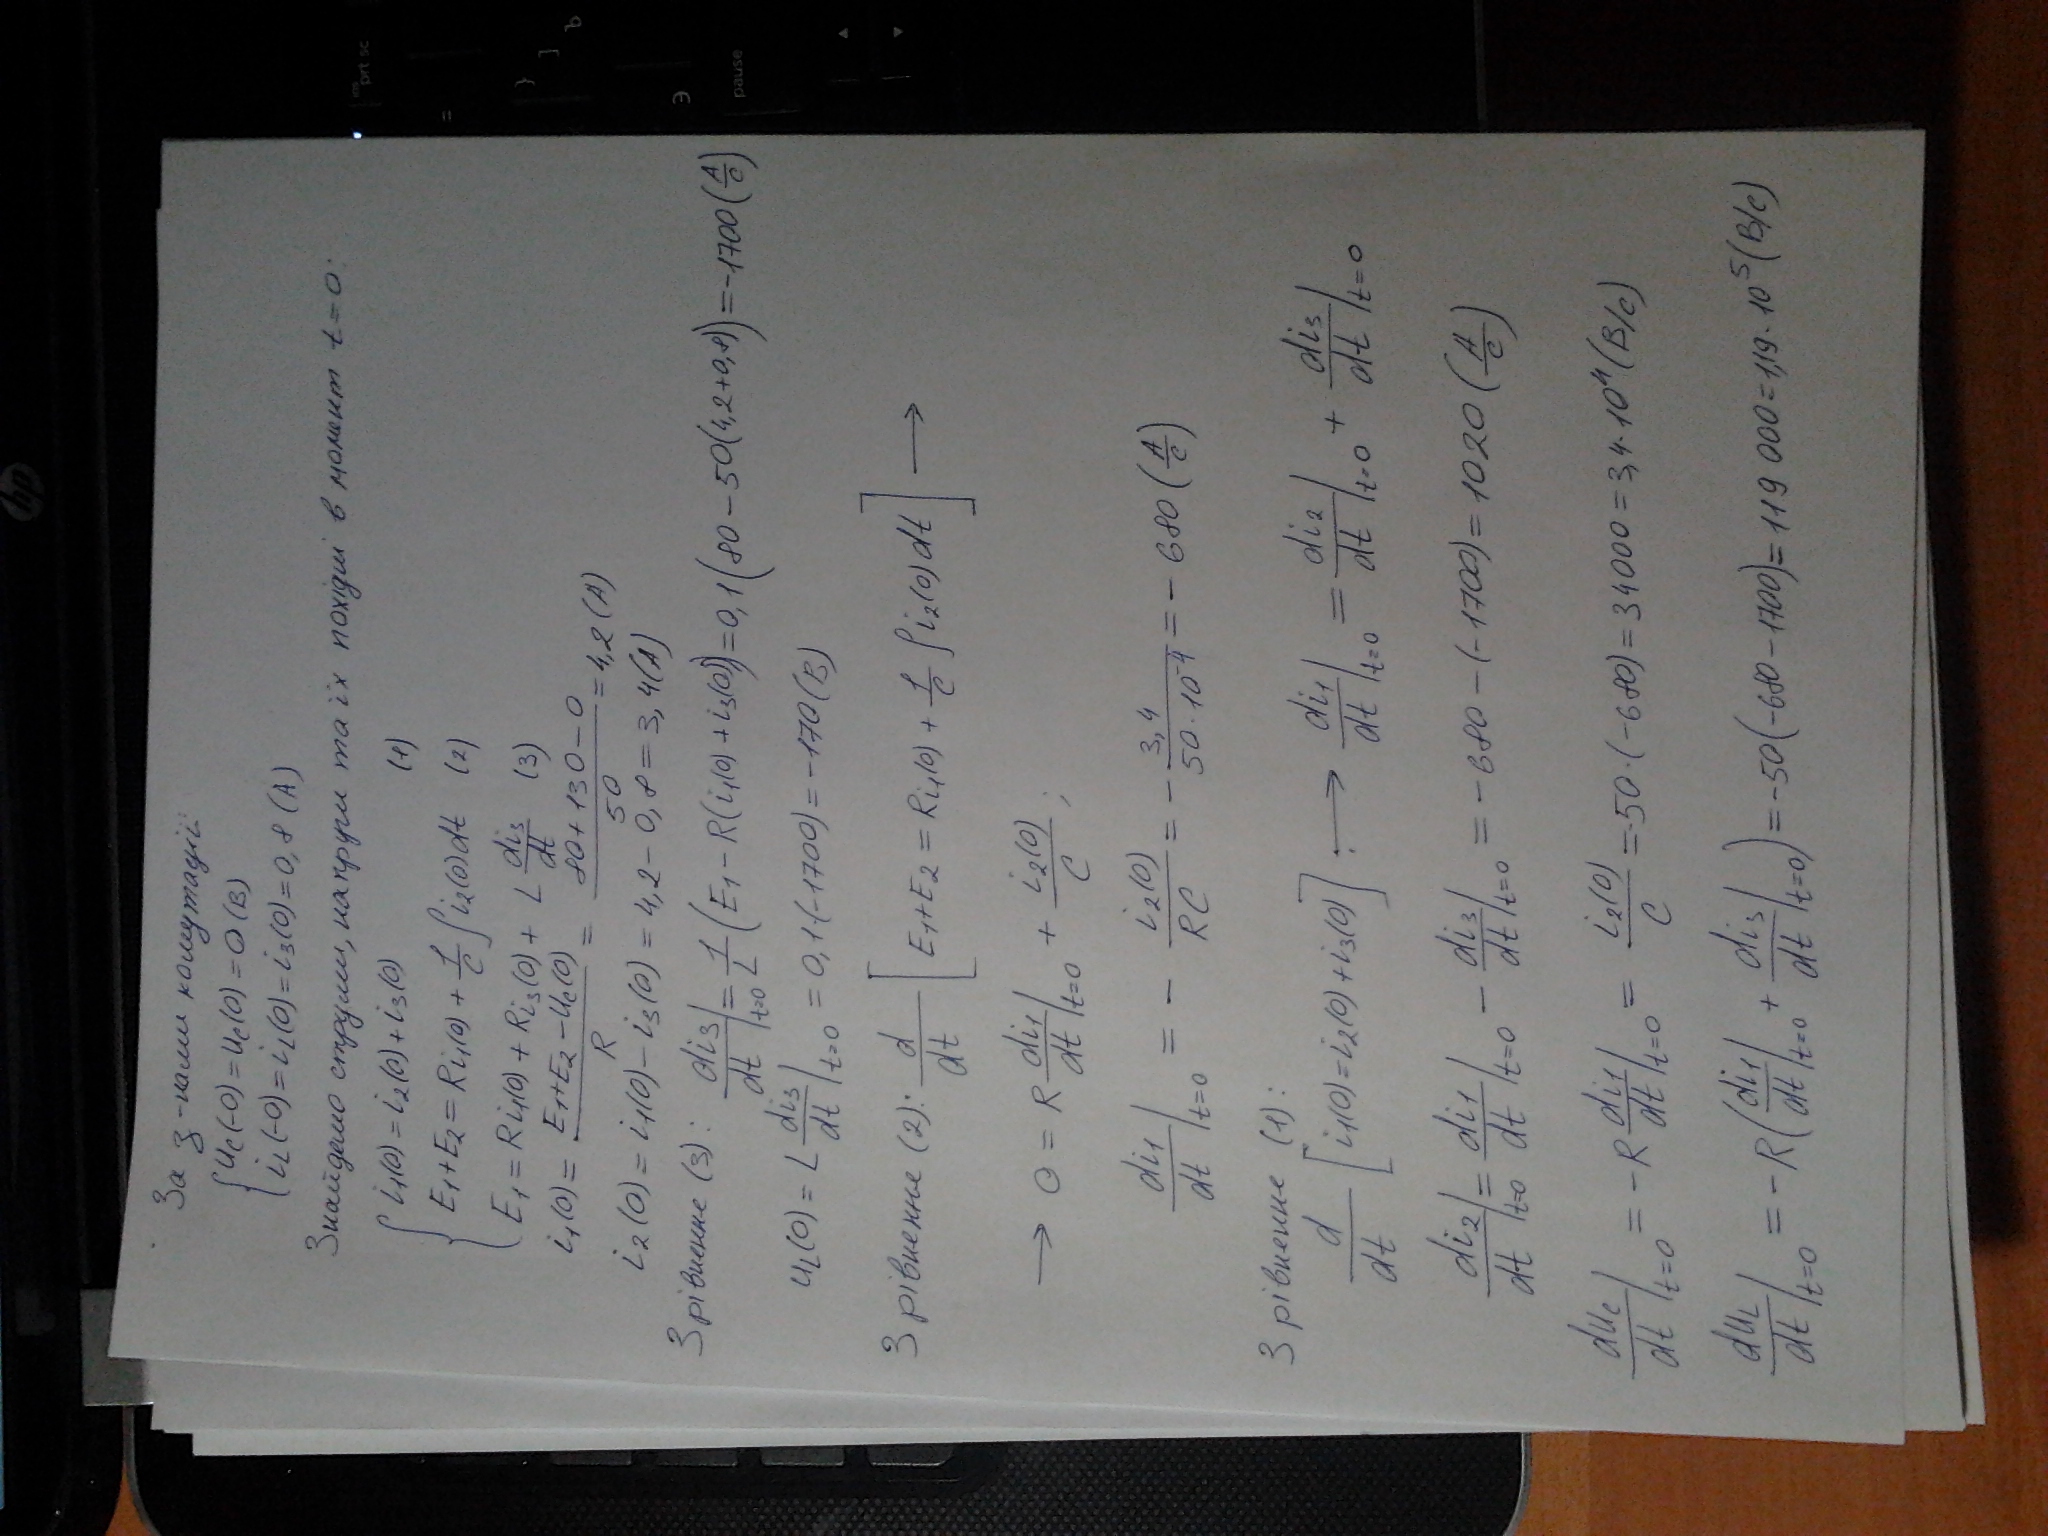 hp
За з-нами комутації:
uc(-0) = uc(0) = 0 (В)
iL(-0) = iL(0) = i3(0) = 0,8 (А)
Знайдемо струми, напруги та їх похідні в момент t=0:
i1(0) = i2(0) + i3(0) (1)
E1+E2 = Ri1(0) + 1/C ∫i2(0)dt (2)
E1 = Ri1(0) + Ri3(0) + L di3/dt (3)
i1(0) = (E1+E2 - uc(0))/R = (80+130-0)/50 = 4,2 (А)
i2(0) = i1(0) - i3(0) = 4,2 - 0,8 = 3,4 (А)
З рівнення (3): di3/dt|t=0 = 1/L (E1 - R(i1(0) + i3(0))) = 0,1(80 - 50(4,2+0,8)) = -1700 (А/с)
uL(0) = L di3/dt|t=0 = 0,1·(-1700) = -170 (В)
З рівнення (2): d/dt [E1+E2 = Ri1(0) + 1/C ∫i2(0)dt] →
→ 0 = R di1/dt|t=0 + i2(0)/C ;
di1/dt|t=0 = - i2(0)/RC = - 3,4/(50·10^-4) = - 680 (А/с)
З рівнення (1):
d/dt [i1(0) = i2(0) + i3(0)] : → di1/dt|t=0 = di2/dt|t=0 + di3/dt|t=0
di2/dt|t=0 = di1/dt|t=0 - di3/dt|t=0 = -680 - (-1700) = 1020 (А/с)
duc/dt|t=0 = -R di1/dt|t=0 = i2(0)/C = -50·(-680) = 34000 = 3,4·10^4 (В/с)
duL/dt|t=0 = -R(di1/dt|t=0 + di3/dt|t=0) = -50(-680-1700) = 119 000 = 1,19·10^5 (В/с)
prt sc
=
}
]
Ъ
Э
pause